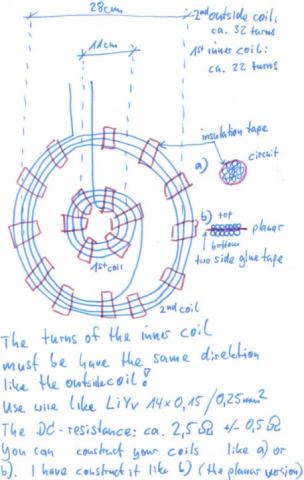 28cm
2nd outside coil:
ca. 32 turns
11cm
1st inner coil:
ca. 22 turns
insulation tape
a)
circuit
b) top
planar
bottom
two side glue tape
1st coil
2nd coil
The turns of the inner coil
must be have the same direktion
like the outsidecoil!
Use wire like LiYv 14x0,15 / 0,25mm²
The DC-resistance: ca. 2,5Ω +/- 0,5Ω
You can construct your coils like a) or
b). I have construct it like b) (the planar version)